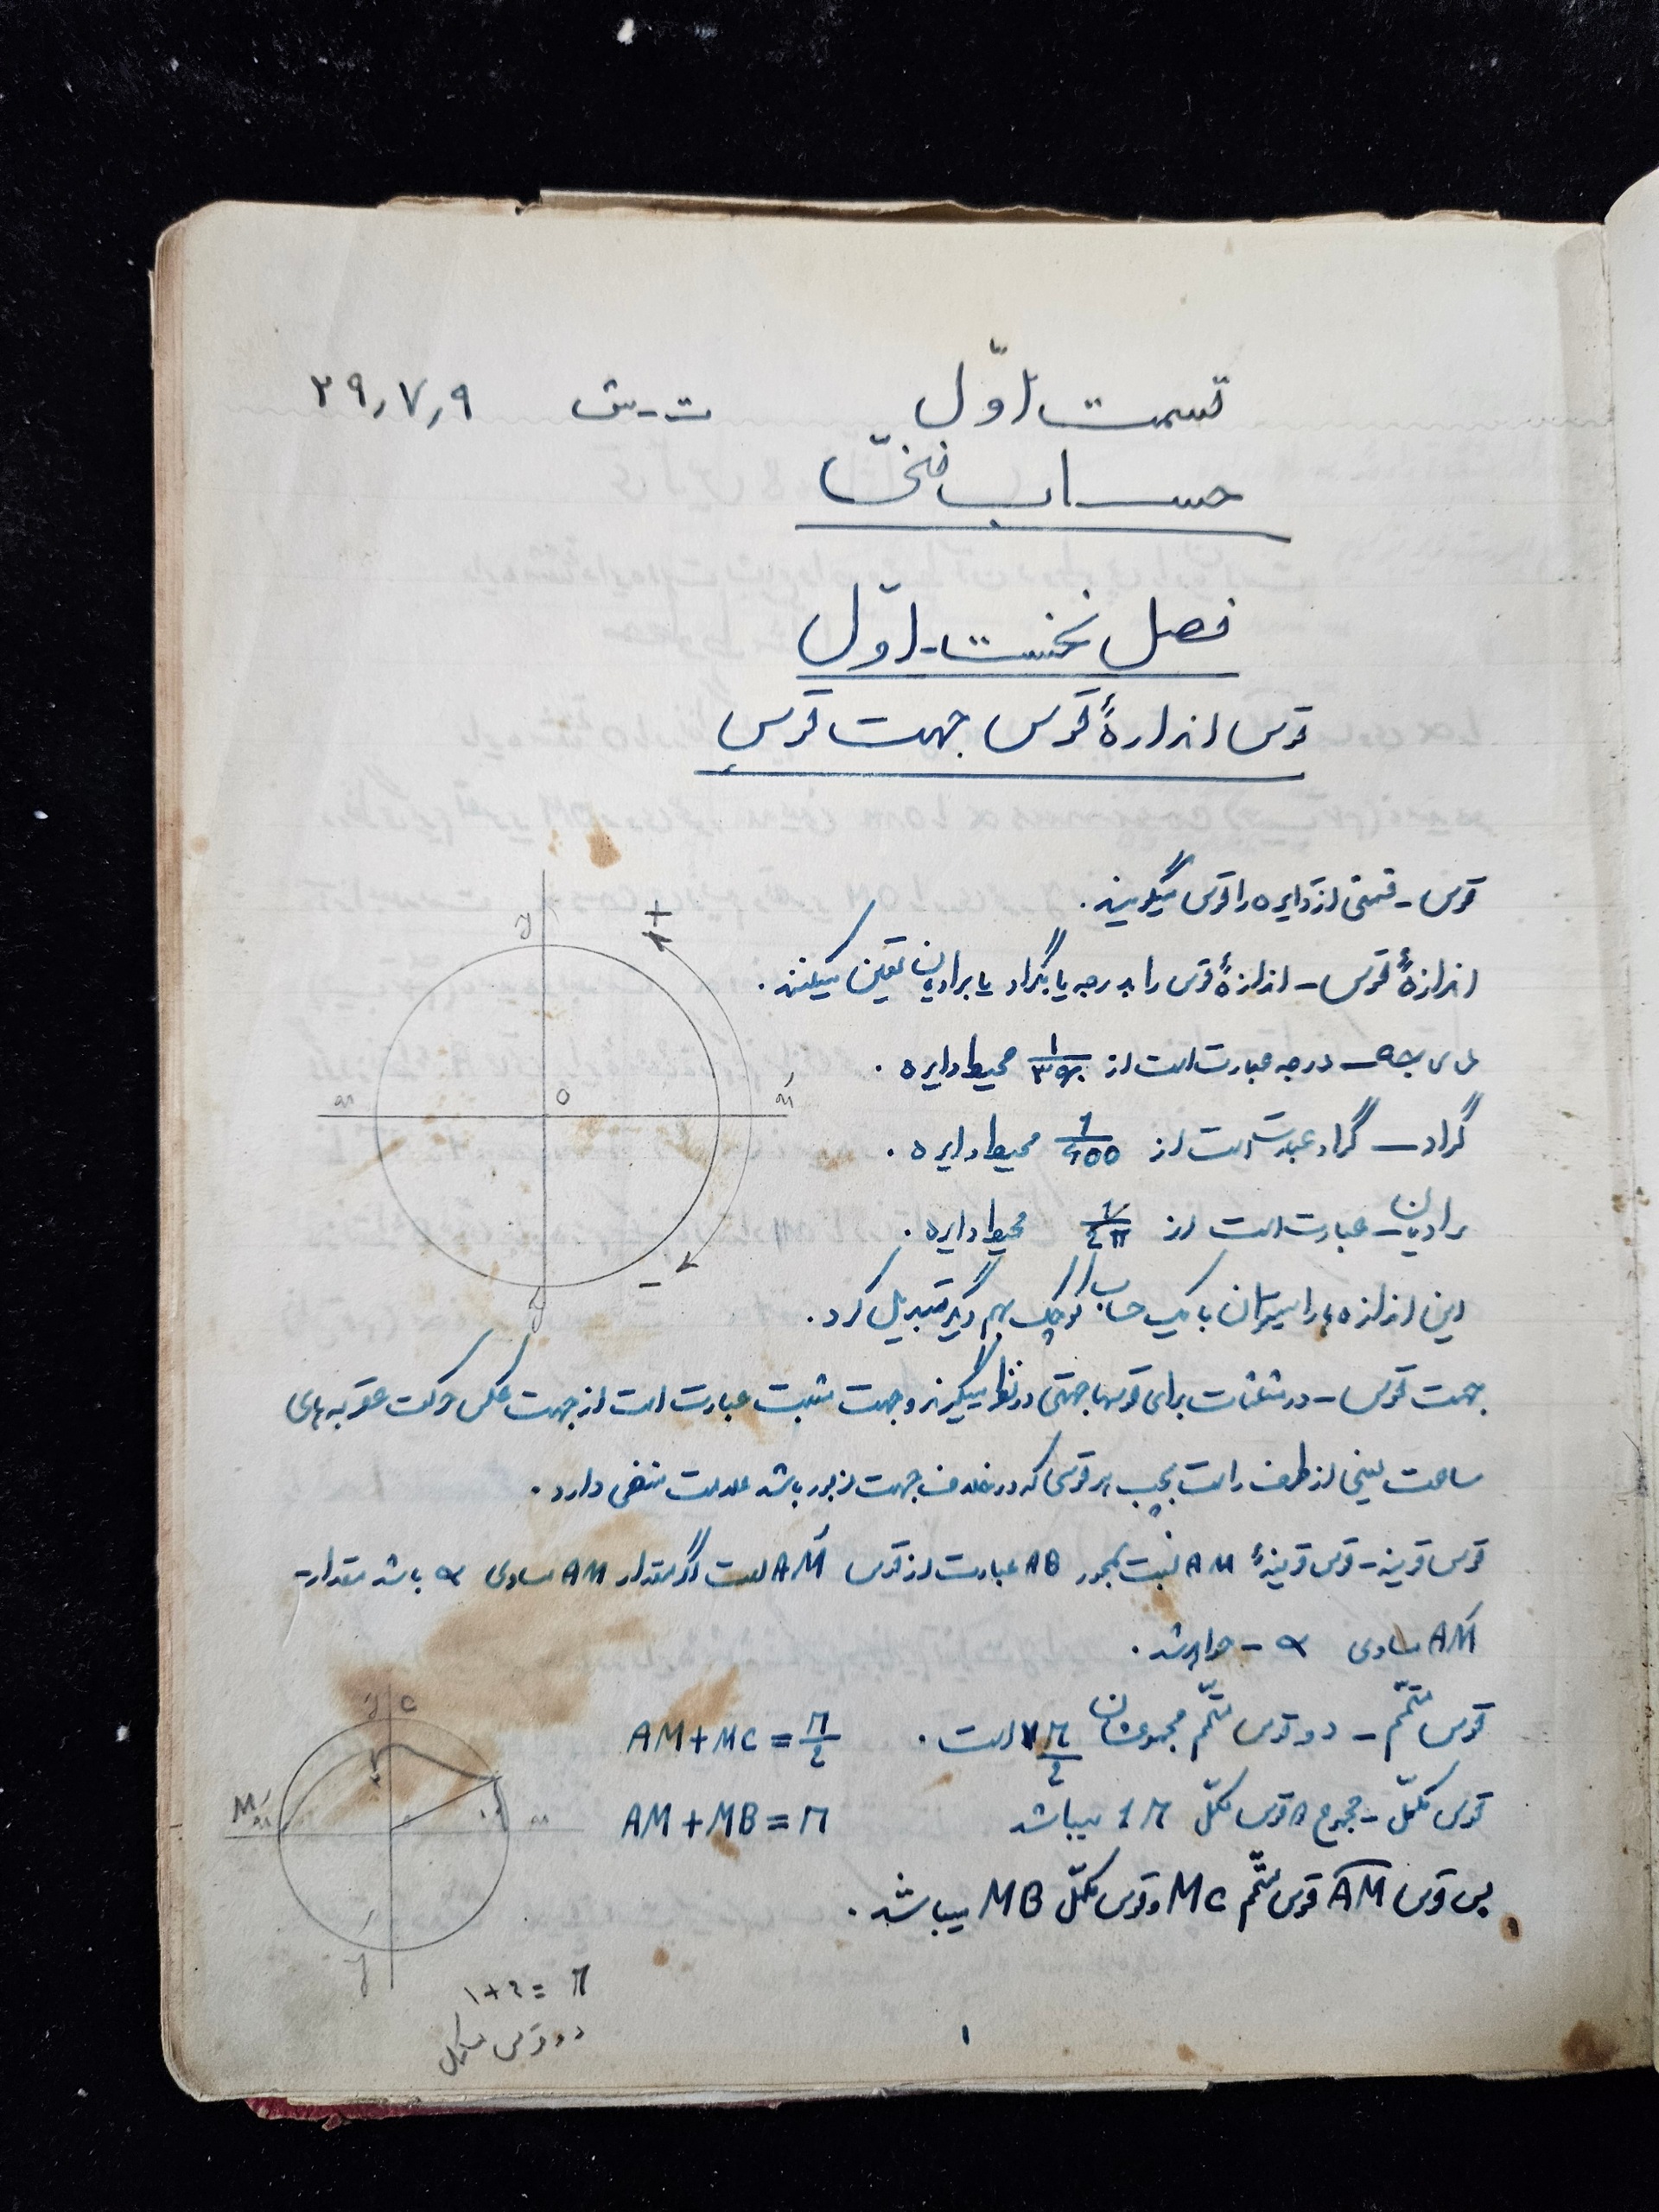 قسمت اوّل ت-ش ۲۹٫۷٫۹
حساب
فصل نخست-اوّل
قوس اندازهٔ قوس جهت قوس
قوس - قسمتی از دایره را قوس میگویند.
اندازهٔ قوس - اندازهٔ قوس را بدرجه یا بگراد یا برادیان تعین میکنند.
درجه - درجه عبارت است از ۱/۳۶۰ محیط دایره.
گراد - گراد عبارت است از 1/400 محیط دایره.
رادیان - عبارت است از 1/2π محیط دایره.
این اندازه ها را میتوان با یک حساب کوچک بهم دیگر تبدیل کرد.
جهت قوس - در مثلثات برای قوسها جهتی در نظر میگیرند و جهت مثبت عبارت است از جهت عکس حرکت عقربه های
ساعت یعنی از طرف راست بچپ هر قوسی که در خلاف جهت زبور باشد علامت منفی دارد.
قوس قرینه - قوس قرینهٔ AM نسبت بمحور AB عبارت از قوس AḾ است اگر مقدار AM مساوی α باشد مقدار-
AḾ مساوی α - خواهد شد.
قوس متمّم - دو قوس متمّم مجموعشان π/2 است. AM+MC = π/2
قوس مکمّل - مجموع دو قوس مکمّل 1π میباشد AM+MB = π
پس قوس AM قوس متمّم MC و قوس مکمّل MB میباشد.
y
+
O
-
y C
M
y
۱+۲ = π
دو قوس مکمل
۱